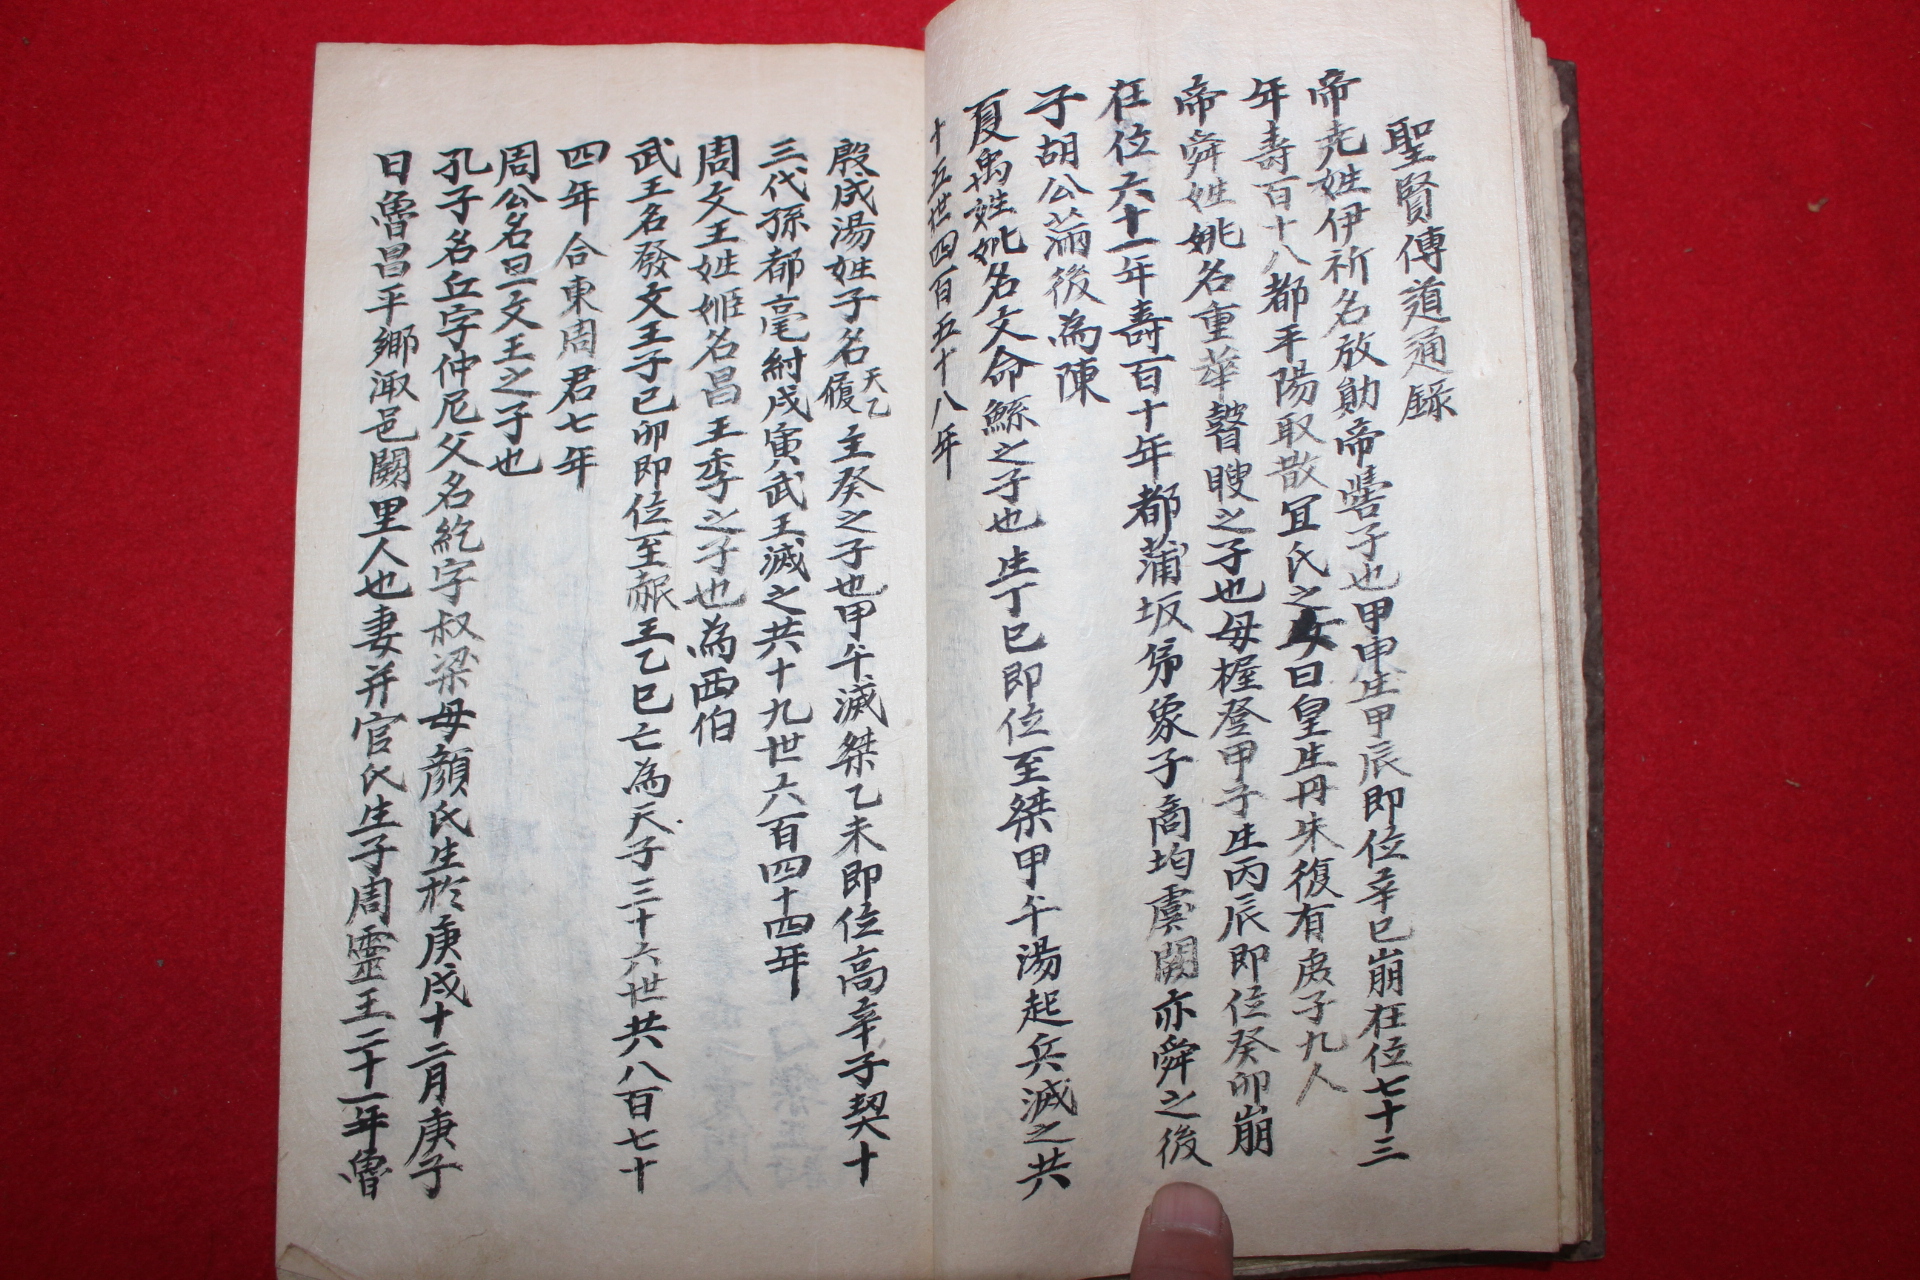 聖賢傳道通錄
帝尭姓伊祈名放勛帝嚳子也甲申生甲辰即位辛巳崩在位七十三
年壽百十八都平陽取散宜氏之女曰皇生丹朱復有庶子九人
帝舜姓姚名重華瞽瞍之子也母握登甲子生丙辰即位癸卯崩
在位六十一年壽一百十年都蒲坂弟象子商均虞閼亦舜之後
子胡公滿後為陳
夏禹姓姚名文命鯀之子也生丁巳即位至桀甲午湯起兵滅之共
十五世四百五十八年
殷成湯姓子名天乙履主癸之子也甲午滅桀乙未即位高辛子契十
三代孫都亳紂戊寅武王滅之共十九世六百四十四年
周文王姓姬名昌王季之子也為西伯
武王名發文王子已卯即位至赧王乙巳亡為天子三十六世共八百七十
四年合東周君七年
周公名旦文王之子也
孔子名丘字仲尼父名紇字叔梁母顏氏生於庚戌十二月庚子
曰魯昌平鄉陬邑闕里人也妻并官氏生子周靈王二十一年魯